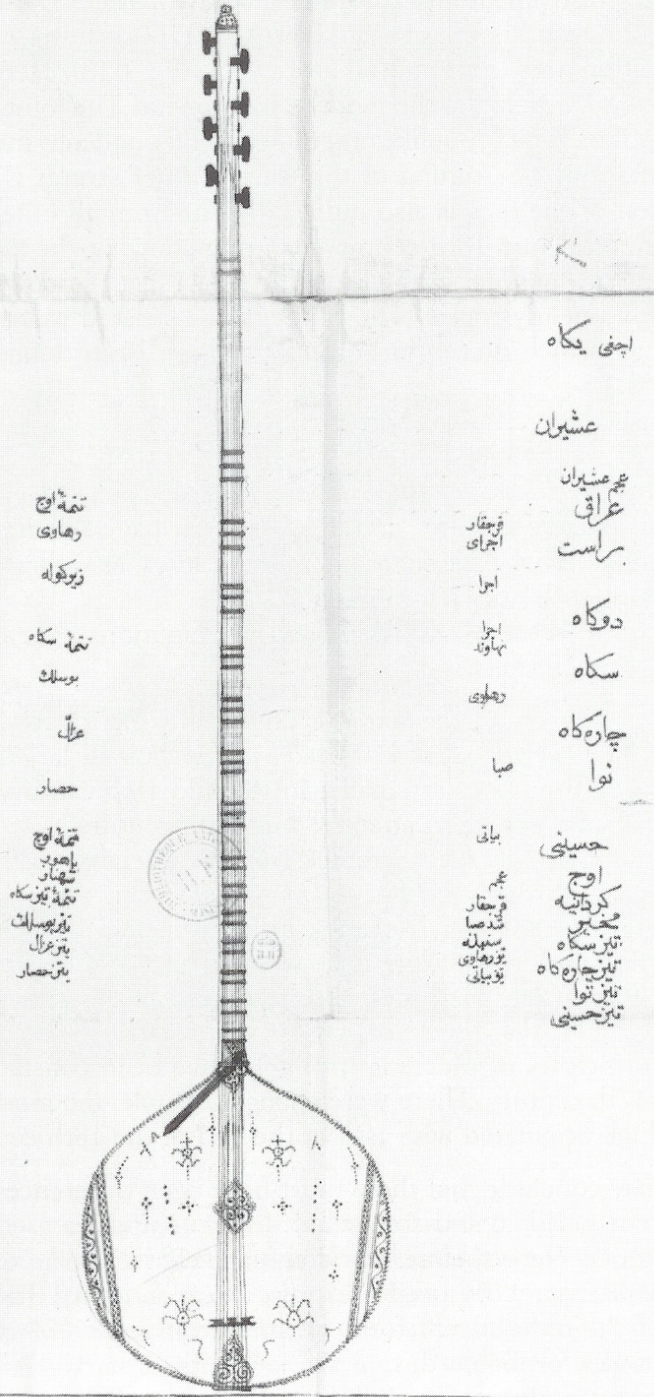 اجفی یکاه
عشیران
عجم عشیران
عراق
راست
دوکاه
سکاه
چارەکاه
نوا
حسینی
اوج
کردانیه
محیر
تیز سکاه
تیز چارەکاه
تیز نوا
تیز حسینی
قرجغار
اجرای
اجرا
اجرا
نهاوند
رهاوی
صبا
بیاتی
عجم
قرجغار
سنبله
تتمۀ اوج
رهاوی
زیرکوله
تتمۀ سکاه
بوسلك
عزال
حصار
تتمۀ اوج
شهناز
تتمۀ تیز سکاه
تیز بوسلك
تیز عزال
تیز حصار